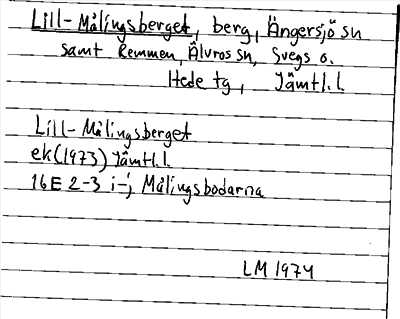 Lill-Målingsberget, berg, Ängersjö sn
samt Remmen, Älvros sn, Svegs o.
Hede tg, Jämtl.l.
Lill-Målingsberget
ek(1973) Jämtl.l.
16E 2-3 i-j, Målingsbodarna
LM 1974